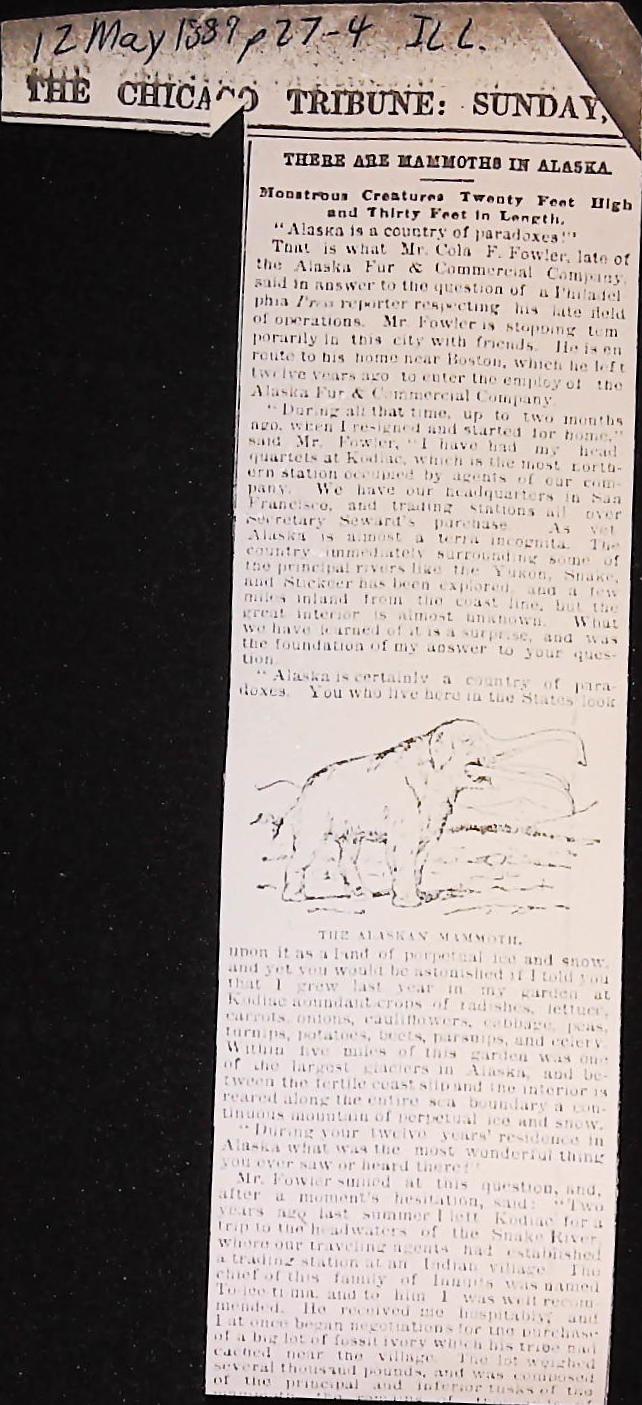 12 May 1889 p 27-4 ILL.
THE CHICAGO TRIBUNE: SUNDAY,
THERE ARE MAMMOTHS IN ALASKA.
Monstrous Creatures Twenty Feet High
and Thirty Feet in Length.
"Alaska is a country of paradoxes!"
That is what Mr. Cola F. Fowler, late of
the Alaska Fur & Commercial Company,
said in answer to the question of a Philadel
phia Press reporter respecting his late field
of operations. Mr. Fowler is stopping tem
porarily in this city with friends. He is en
route to his home near Boston, which he left
twelve years ago to enter the employ of the
Alaska Fur & Commercial Company.
"During all that time, up to two months
ago, when I resigned and started for home,"
said Mr. Fowler, "I have had my head
quarters at Kodiac, which is the most north-
ern station occupied by agents of our com-
pany. We have our headquarters in San
Francisco, and trading stations all over
Secretary Seward's purchase. As yet
Alaska is almost a terra incognita. The
country immediately surrounding some of
the principal rivers like the Yukon, Snake,
and Stickeer has been explored, and a few
miles inland from the coast line, but the
great interior is almost unknown. What
we have learned of it is a surprise, and was
the foundation of my answer to your ques-
tion.
"Alaska is certainly a country of para-
doxes. You who live here in the States look
THE ALASKAN MAMMOTH.
upon it as a land of perpetual ice and snow,
and yet you would be astonished if I told you
that I grew last year in my garden at
Kodiac abundant crops of radishes, lettuce,
carrots, onions, cauliflowers, cabbage, peas,
turnips, potatoes, beets, parsnips, and celery.
Within five miles of this garden was one
of the largest glaciers in Alaska, and be-
tween the fertile coast slip and the interior is
reared along the entire sea boundary a con-
tinuous mountain of perpetual ice and snow.
"During your twelve years' residence in
Alaska what was the most wonderful thing
you ever saw or heard there?"
Mr. Fowler smiled at this question, and,
after a moment's hesitation, said: "Two
years ago last summer I left Kodiac for a
trip to the headwaters of the Snake River,
where our traveling agents had established
a trading station at an Indian village. The
chief of this family of Innuits was named
To-lee-ti-ma, and to him I was well recom-
mended. He received me hospitably, and
I at once began negotiations for the purchase
of a big lot of fossil ivory which his tribe had
cached near the village. The lot weighed
several thousand pounds, and was composed
of the principal and inferior tusks of the